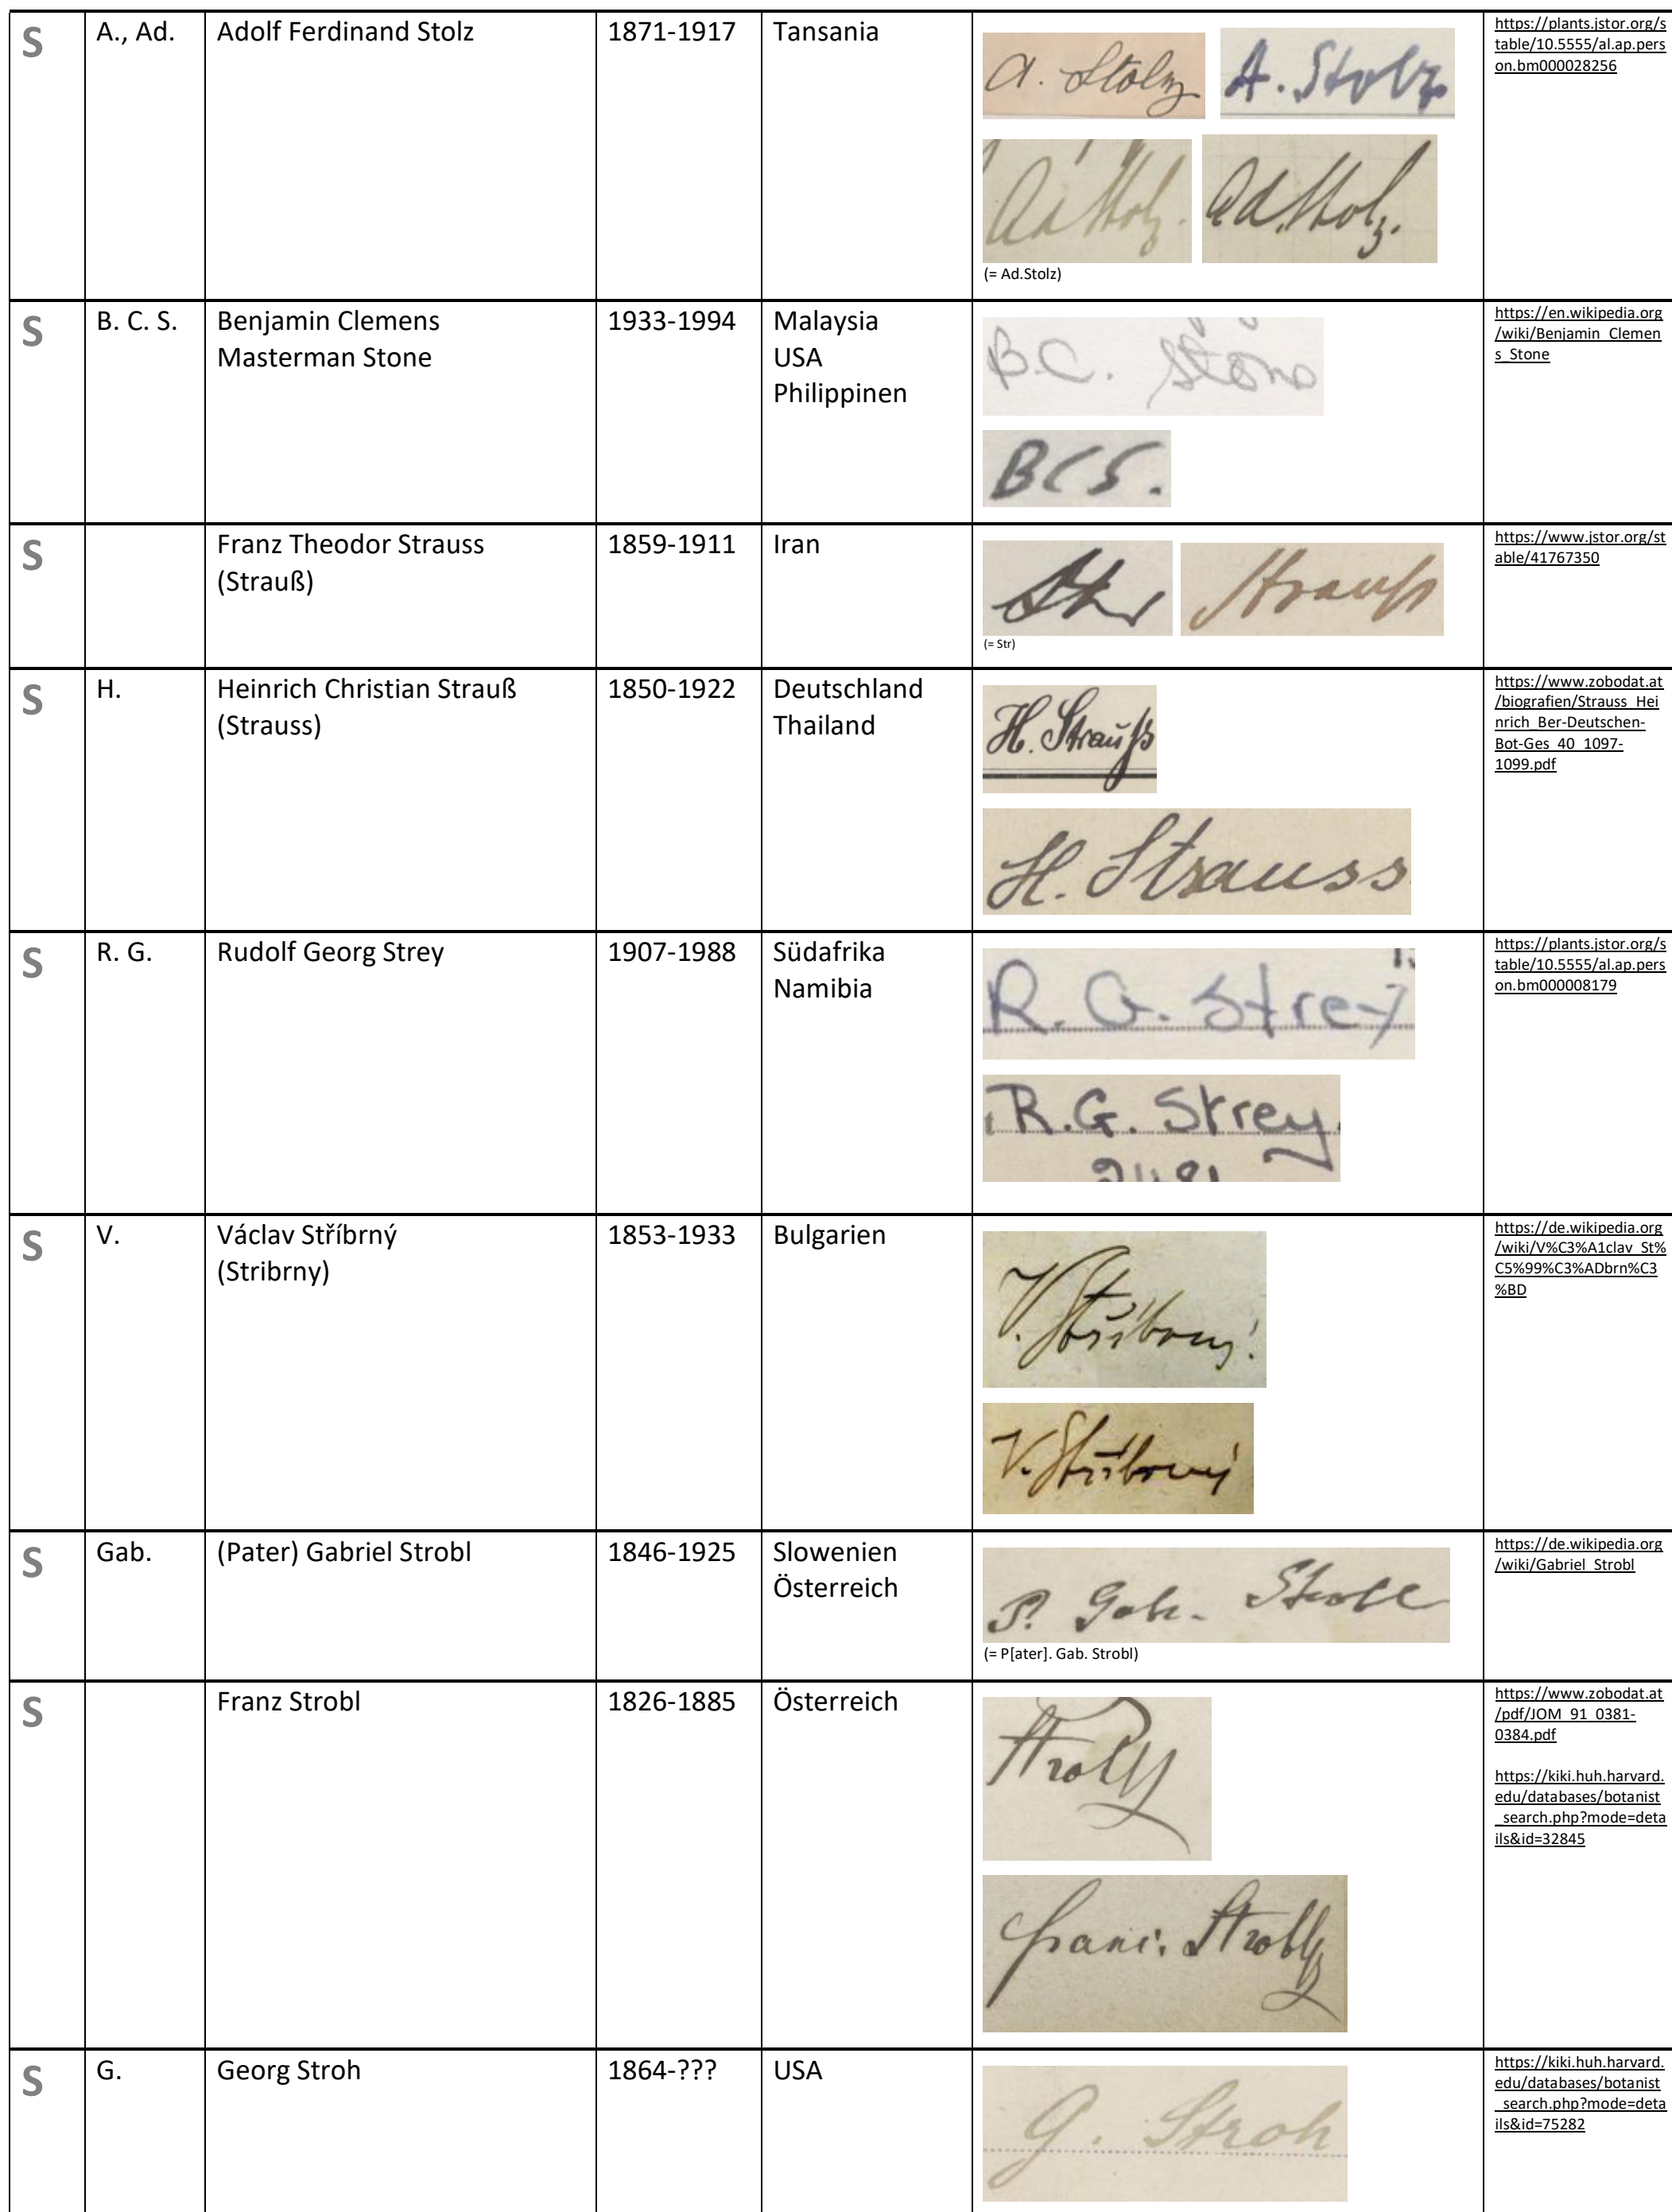 S A., Ad. Adolf Ferdinand Stolz 1871-1917 Tansania
A. Stolz A. Stolz
Ad Stolz. Ad. Stolz.
(= Ad.Stolz)
https://plants.jstor.org/s
table/10.5555/al.ap.pers
on.bm000028256
S B. C. S. Benjamin Clemens
Masterman Stone
1933-1994
Malaysia
USA
Philippinen
B.C. Stone
BCS.
https://en.wikipedia.org
/wiki/Benjamin_Clemen
s_Stone
S Franz Theodor Strauss
(Strauß)
1859-1911 Iran
Str Strauß
(= Str)
https://www.jstor.org/st
able/41767350
S H. Heinrich Christian Strauß
(Strauss)
1850-1922
Deutschland
Thailand
H. Strauß
H. Strauss
https://www.zobodat.at
/biografien/Strauss_Hei
nrich_Ber-Deutschen-
Bot-Ges_40_1097-
1099.pdf
S R. G. Rudolf Georg Strey 1907-1988
Südafrika
Namibia
R. G. Strey
R.G. Strey
https://plants.jstor.org/s
table/10.5555/al.ap.pers
on.bm000008179
S V. Václav Stříbrný
(Stribrny)
1853-1933 Bulgarien
V. Stříbrný
V. Stříbrný
https://de.wikipedia.org
/wiki/V%C3%A1clav_St%
C5%99%C3%ADbrn%C3
%BD
S Gab. (Pater) Gabriel Strobl 1846-1925
Slowenien
Österreich
P. Gab. Strobl
(= P[ater]. Gab. Strobl)
https://de.wikipedia.org
/wiki/Gabriel_Strobl
S Franz Strobl 1826-1885 Österreich
Strobl
Strobl
https://www.zobodat.at
/pdf/JOM_91_0381-
0384.pdf
https://kiki.huh.harvard.
edu/databases/botanist
_search.php?mode=deta
ils&id=32845
S G. Georg Stroh 1864-??? USA
G. Stroh
https://kiki.huh.harvard.
edu/databases/botanist
_search.php?mode=deta
ils&id=75282